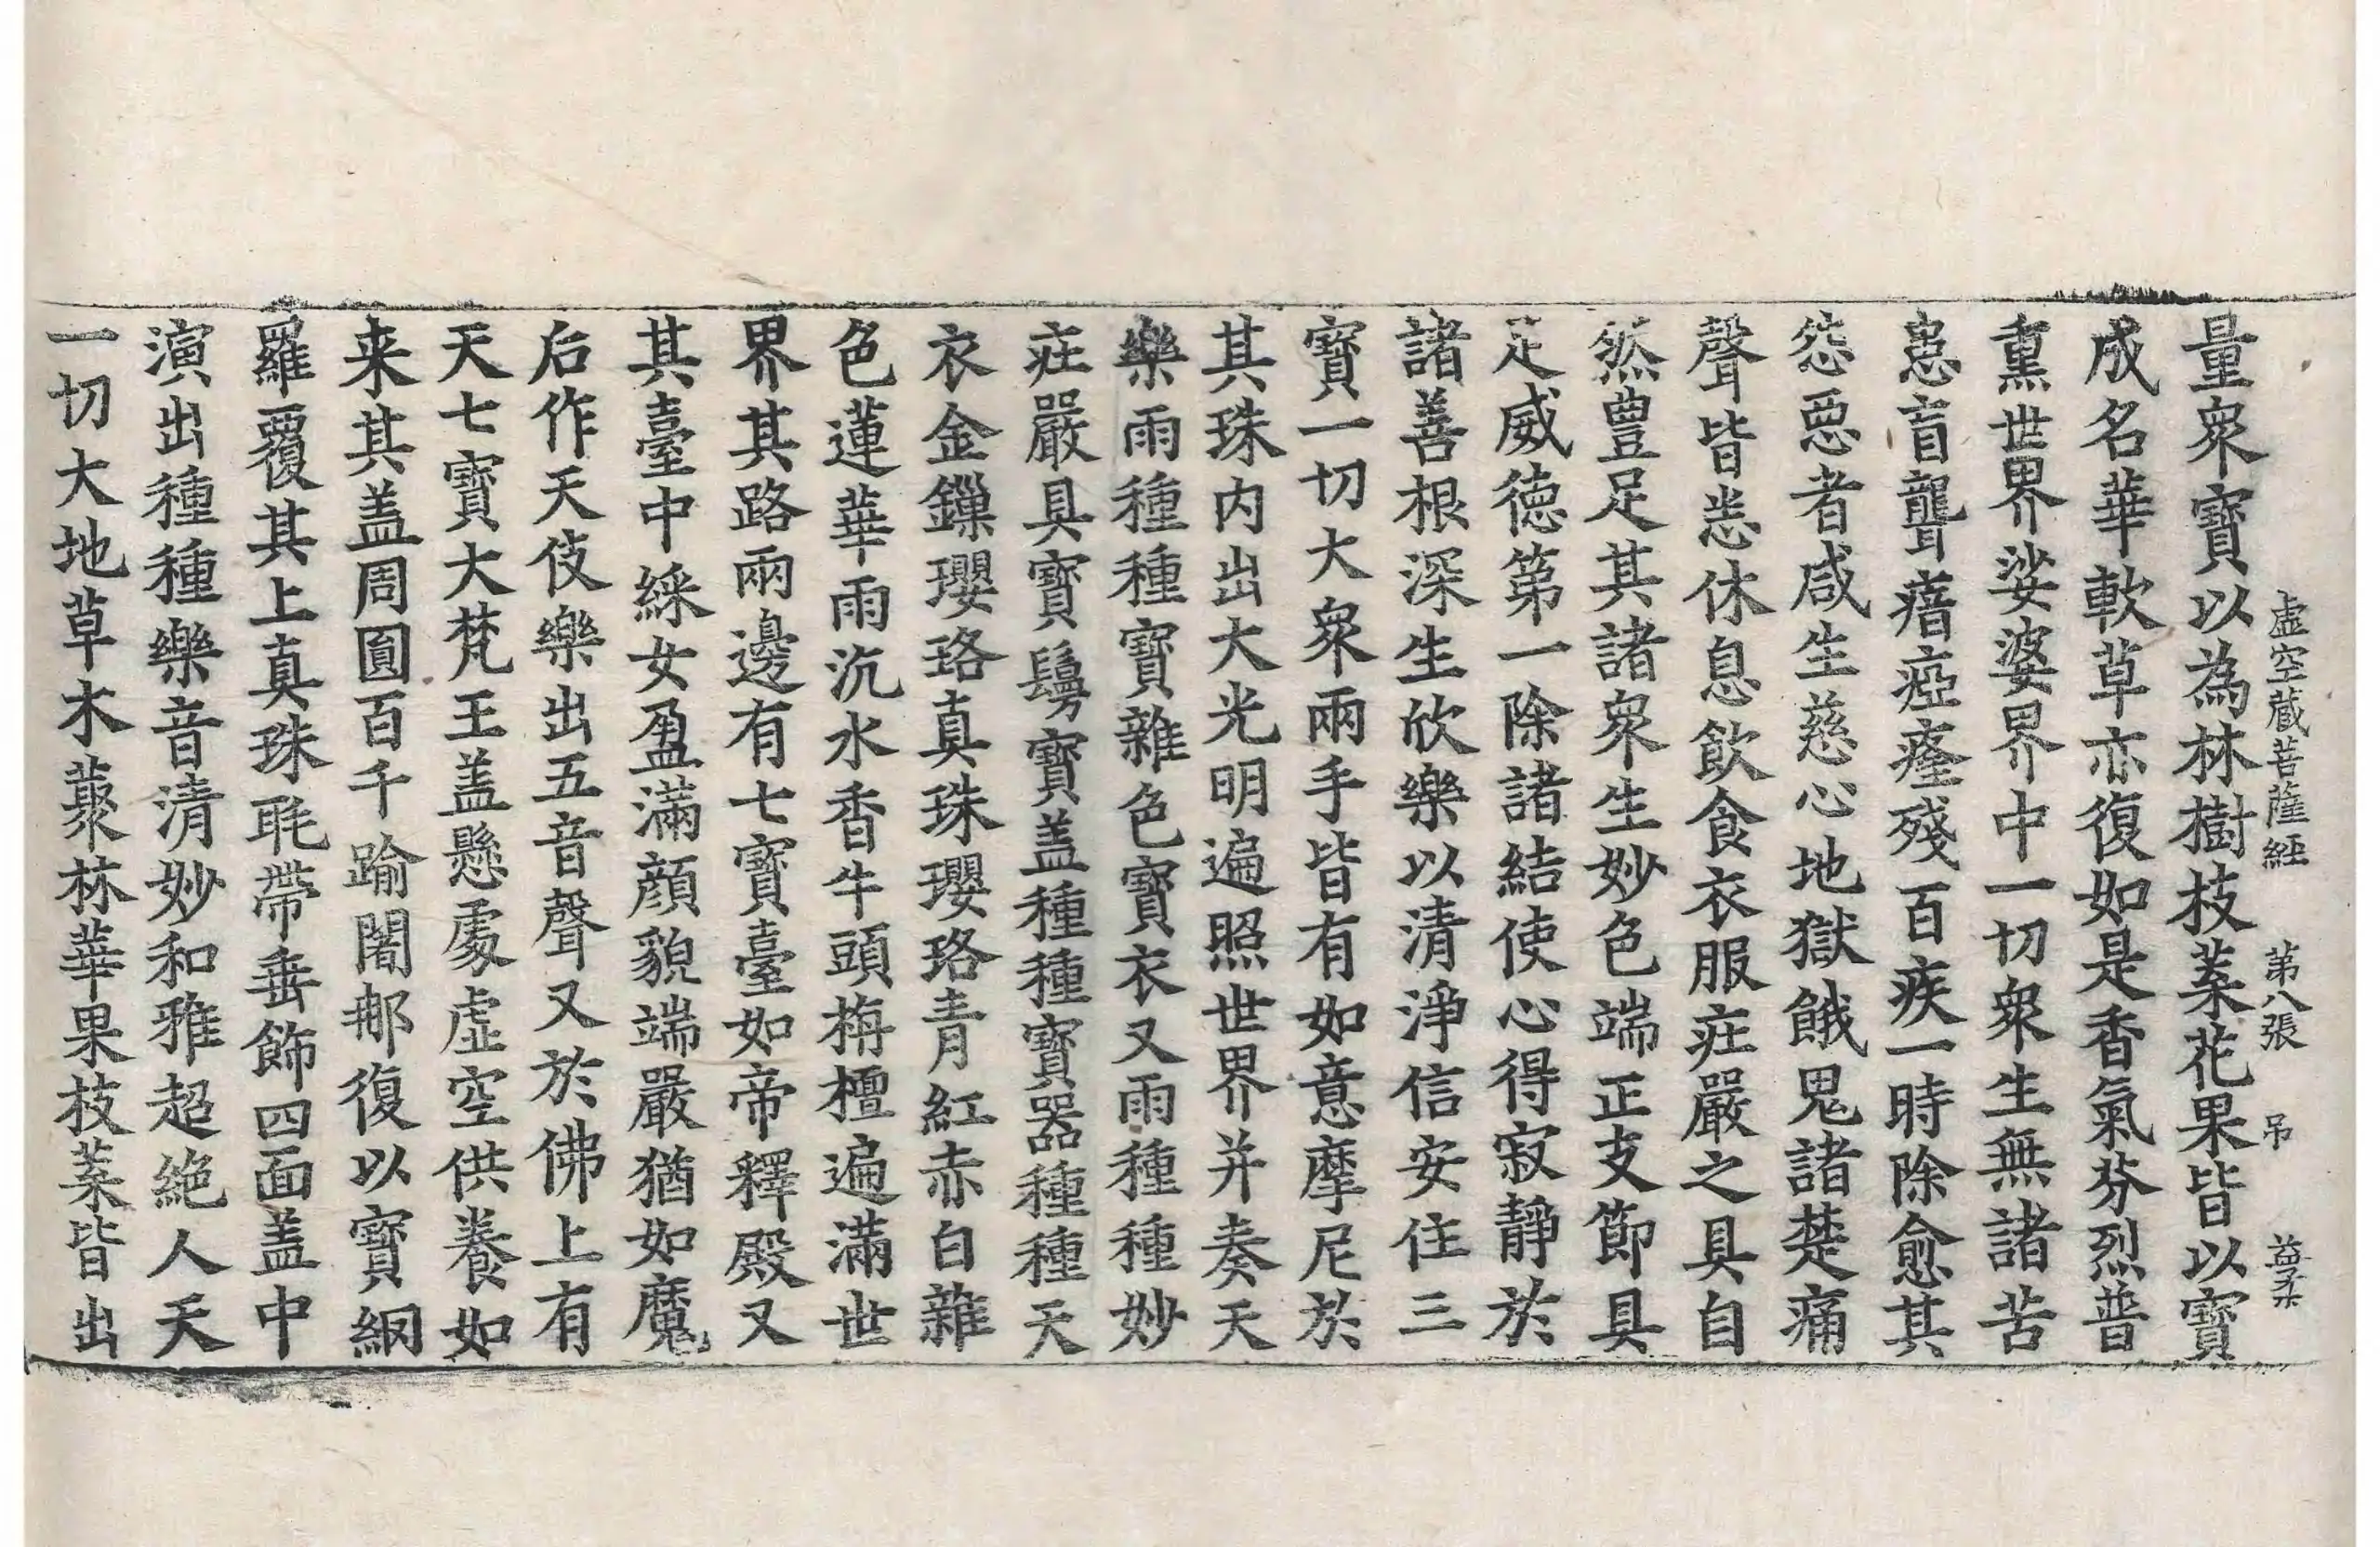 虛空藏菩薩經 第八張 弔 益柔
量衆寶以為林樹枝葉花果皆以寶
成名華軟草亦復如是香氣芬烈普
熏世界娑婆界中一切衆生無諸苦
患盲聾瘖瘂癃殘百疾一時除愈其
怨惡者咸生慈心地獄餓鬼諸楚痛
聲皆悉休息飲食衣服庄嚴之具自
然豊足其諸衆生妙色端正支節具
足威德第一除諸結使心得寂靜於
諸善根深生欣樂以清淨信安住三
寶一切大衆兩手皆有如意摩尼於
其珠内出大光明遍照世界并奏天
樂雨種種寶雜色寶衣又雨種種妙
庄嚴具寶鬘寶盖種種寶器種種天
衣金鏁瓔珞真珠瓔珞青紅赤白雜
色蓮華雨沉水香牛頭栴檀遍滿世
界其路兩邊有七寶臺如帝釋殿又
其臺中綵女盈滿顔貌端嚴猶如魔
后作天伎樂出五音聲又於佛上有
天七寶大梵王盖懸處虛空供養如
来其盖周圓百千踰闍那復以寶網
羅覆其上真珠毦帶垂飾四面盖中
演出種種樂音清妙和雅超絶人天
一切大地草木藂林華果枝葉皆出